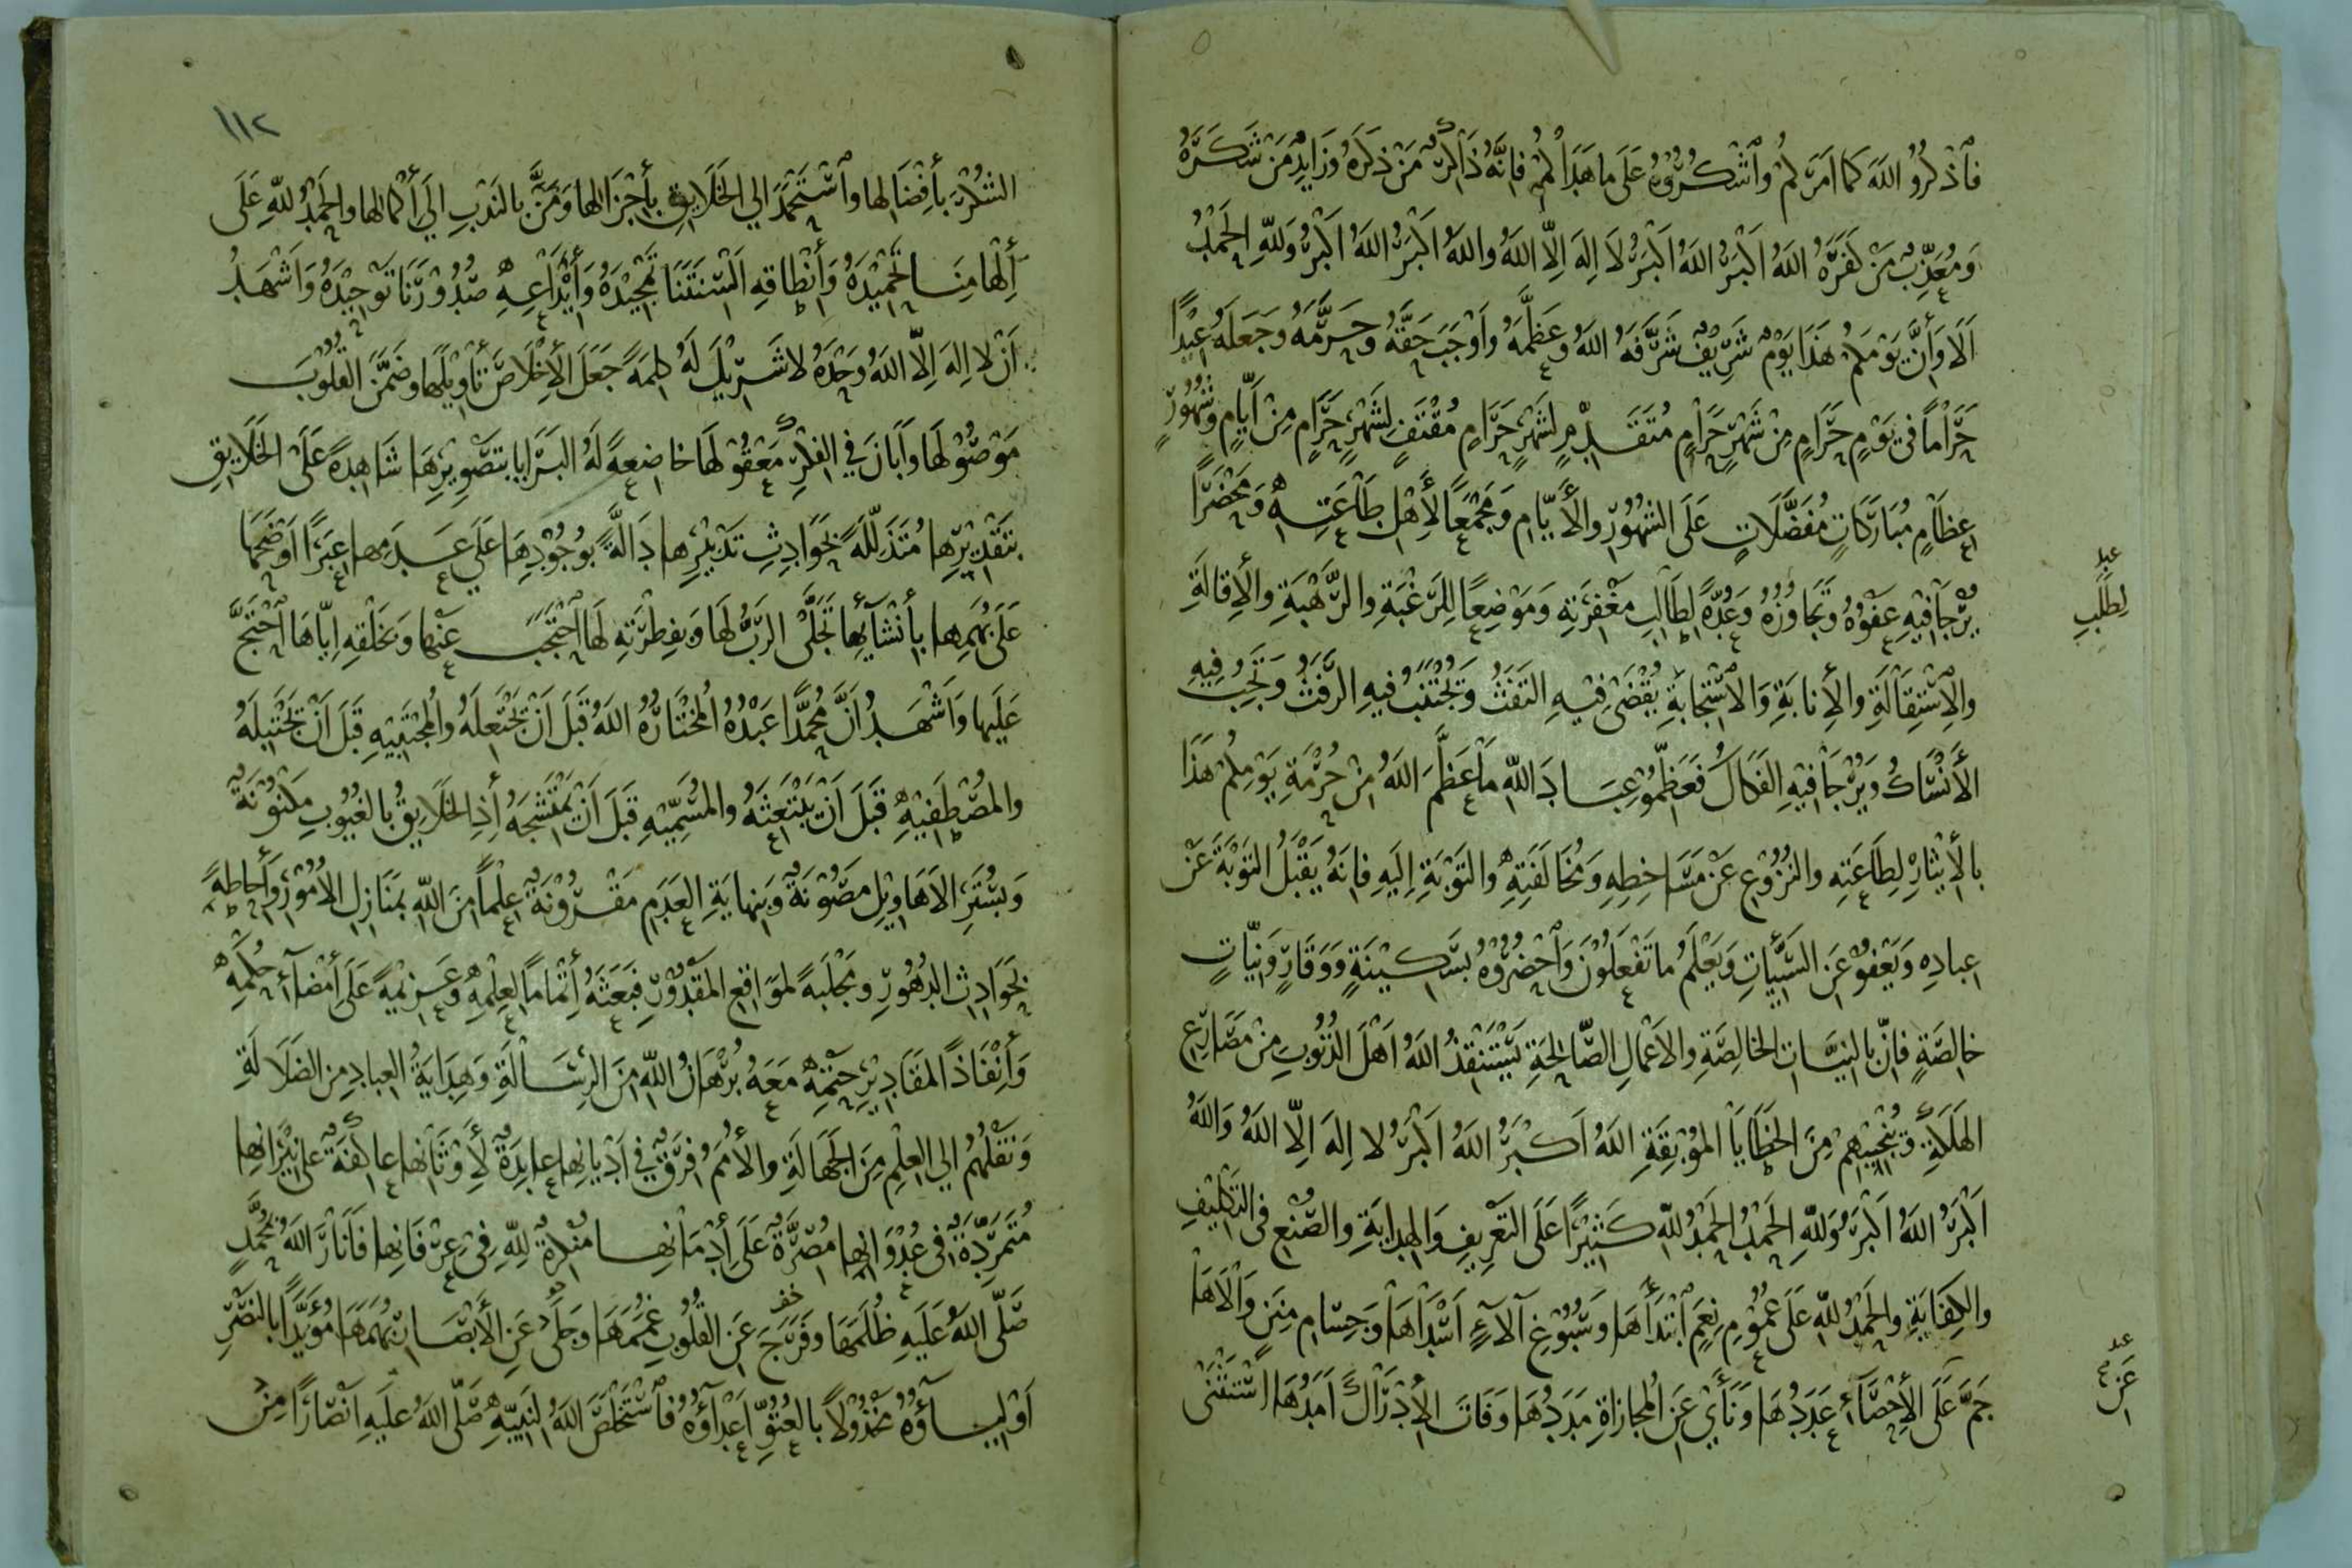 فَاذْكُرُوا اللهَ كَمَا اَمَرَكُمْ وَاشْكُرُوْهُ عَلَى مَا هَدَاكُمْ فَاِنَّهُ ذَاكِرٌ مَنْ ذَكَرَهُ وَزَايِدٌ مَنْ شَكَرَهُ
وَمُعَذِّبٌ مَنْ كَفَرَهُ اللهُ اَكْبَرُ اللهُ اَكْبَرُ لَا اِلهَ اِلَّا اللهُ وَاللهُ اَكْبَرُ اللهُ اَكْبَرُ وَلِلّهِ الْحَمْدُ
اَلَا وَاَنَّ يَوْمَكُمْ هَذَا يَوْمٌ شَرِيْفٌ شَرَّفَهُ اللهُ وَعَظَّمَهُ وَاَوْجَبَ حَقَّهُ وَحَرَّمَهُ وَجَعَلَهُ عِيْدًا
حَرَامًا فِى يَوْمٍ حَرَامٍ مِنْ شَهْرٍ حَرَامٍ مُتَقَدِّمٍ لِشَهْرٍ حَرَامٍ مُقْتَفٍ لِشَهْرٍ حَرَامٍ مِنْ اَيَّامٍ وَشُهُوْرٍ
عِظَامٍ مُبَارَكَاتٍ مُفَضَّلَاتٍ عَلَى الشُهُوْرِ وَالْأَيَّامِ وَمَجْمَعًا لِأَهْلِ طَاعَتِهِ وَمَحْضَرًا
يُرْجَا فِيْهِ عَفْوُهُ وَتَجَاوُزُهُ وَعُدَّةً لِطَالِبِ مَغْفِرَتِهِ وَمَوْضِعًا لِلرَغْبَةِ وَالرَهْبَةِ وَالْأِقَالَةِ
لِطَلَبِ
وَالِاسْتِقَالَةِ وَالْأِنَابَةِ وَالِاسْتِجَابَةِ يُقْضَى فِيْهِ التَفَثُ وَيُجْتَنَبُ فِيْهِ الرَفَثُ وَتَجِبُ فِيْهِ
الْأَنْسَاكُ وَيُرْجَا فِيْهِ الفَكَاكُ فَعَظِّمُوْ عِبَادَ اللهِ مَا عَظَّمَ اللهُ مِنْ حُرْمَةِ يَوْمِكُمْ هَذَا
بِالْأِيْثَارِ لِطَاعَتِهِ وَالنُزُوْعِ عَنْ مَسَاخِطِهِ وَمُخَالَفَتِهِ وَالتَوْبَةِ اِلَيهِ فَاِنَهُ يَقْبَلُ التَوْبَةَ عَنْ
عِبَادِهِ وَيَعْفُوْ عَنِ السَيِّئَاتِ وَيَعْلَمُ مَا تَفْعَلُوْنَ وَاحْضُرُوْهُ بِسَكِيْنَةٍ وَوَقَارٍ وَنِيَّاتٍ
خَالِصَةٍ فَاِنَّ بِالنِيَّاتِ الخَالِصَةِ وَالْأَعْمَالِ الصَّالِحَةِ يَسْتَنْقِذُ اللهُ اَهْلَ الذُنُوْبِ مِنْ مَصَارِعِ
الهَلَكَةِ وَيُنْجِيْهِمْ مِنَ الخَطَايَا المُوْبِقَةِ اللهُ اَكْبَرُ اللهُ اَكْبَرُ لَا اِلهَ اِلَّا اللهُ وَاللهُ
اَكْبَرُ اللهُ اَكْبَرُ وَلِلّهِ الْحَمْدُ الْحَمْدُ لِلّهِ كَثِيْرًا عَلَى التَعْرِيفِ وَالهِدَايَةِ وَالصُنْعِ فِى التَكْلِيْفِ
وَالكِفَايَةِ وَالْحَمْدُ لِلّهِ عَلَى عُمُوْمِ نِعَمٍ ابْتَدَأَهَا وَسُبُوْغِ آلَاءٍ اَسْدَاهَا وَجِسَامِ مِنَنٍ وَالَاهَا
جَمَّ عَلَى الْأِحْصَآءِ عَدَدُهَا وَنَأَى عَنِ المُجَازَاةِ مَدَدُهَا وَفَاتَ الْأِدْرَاكَ اَمَدُهَا اسْتَثْنَى
عَنْ
١١٢
الشُكْرَ بِأَفْضَالِهَا وَاسْتَحْمَدَ اِلَى الخَلَايِقِ بِأَجْزَالِهَا وَمَنَّ بِالنَدْبِ اِلَى أَكْمَالِهَا وَالْحَمْدُ لِلّهِ عَلَى
أِلْهَامِنَا تَحْمِيْدَهُ وَأِنْطَاقِهِ اَلْسِنَتَنَا تَمْجِيْدَهُ وَأِيْدَاعِهِ صُدُوْرَنَا تَوْحِيْدَهُ وَاَشْهَدُ
اَنْ لَا اِلهَ اِلَّا اللهُ وَحْدَهُ لَا شَرِيْكَ لَهُ كَلِمَةً جَعَلَ الْأِخْلَاصَ تَأْوِيْلَهَا وَضَمَّنَ القُلُوْبَ
مَوْصُوْلَهَا وَاَبَانَ فِي الفِكْرِ مَعْقُوْلَهَا خَاضِعَةً لَهُ البَرَايَا بِتَصْوِيْرِهَا شَاهِدَةً عَلَى الخَلَايِقِ
بِتَقْدِيْرِهَا مُتَذَلِّلَةً بِحَوَادِثِ تَدْبِيْرِهَا دَالَّةً بِوُجُوْدِهَا عَلَى عَدَمِهَا عِبَرًا اَوْضَحَهَا
عَلَى بُهَمِهَا بِأِنْشَآئِهَا تَجَلَّى الرَبُّ لَهَا وَبِفِطْرَتِهِ لَهَا احْتَجَبَ عَنْهَا وَبِخَلْقِهِ اِيَّاهَا احْتَجَّ
عَلَيهَا وَاَشْهَدُ اَنَّ مُحَمَّدًا عَبْدُهُ الْمُخْتَارُهُ اللهُ قَبْلَ اَنْ يَجْتَعِلَهُ وَالْمُجْتَبِيْهِ قَبْلَ اَنْ يَجْتَبِلَهُ
وَالمُصْطَفِيْهِ قَبْلَ اَنْ يَبْتَعِثَهُ وَالمُسَمِّيْهِ قَبْلَ اَنْ يَمْتَشِجَهُ أِذِ الخَلَايِقُ بِالغُيُوْبِ مَكْنُوْنَةٌ
وَبِسُتَرِ الْأَهَاوِيْلِ مَصُوْنَةٌ وَبِنِهَايَةِ العَدَمِ مَقْرُوْنَةٌ عِلْمًا مِنَ اللهِ بِمَنَازِلِ الْأُمُوْرِ وَأِحَاطَةً
بِحَوَادِثِ الدُهُوْرِ وَمَجْلَبَةً لِمَوَاقِعِ المَقْدُوْرِ فَبَعَثَهُ أِتْمَامًا لِعِلْمِهِ وَعَزِيْمَةً عَلَى أِمْضَآءِ حُكْمِهِ
وَأِنْفَاذًا لِمَقَادِيْرِ حَتْمِهِ مَعَهُ بُرْهَانُ اللهِ مِنَ الرِسَالَةِ وَهِدَايَةُ العِبَادِ مِنَ الضَلَالَةِ
وَنَقْلُهُمْ اِلَى العِلْمِ مِنَ الجَهَالَةِ وَالْأُمَمُ فِرَقٌ فِي اَدْيَانِهَا عَابِدَةٌ لِأَوْثَانِهَا عَاكِفَةٌ عَلَى نِيْرَانِهَا
مُتَمَرِّدَةٌ فِى عُدْوَانِهَا مُصِرَّةٌ عَلَى أِدْمَانِهَا مُنْكِرَةٌ لِلّهِ فِي عِرْفَانِهَا فَأَنَارَ اللهُ بِمُحَمَّدٍ
صَلَّى اللهُ عَلَيهِ ظُلَمَهَا وَفَرَّجَ عَنِ القُلُوْبِ غُمَمَهَا وَجَلَى عَنِ الْأَبْصَارِ بُهَمَهَا مُؤَيَّدًا بِالنَصْرِ
اَوْلِيَآؤُهُ مَخْذُوْلًا بِالعُتُوِّ اَعْدَآؤُهُ فَاسْتَخْلَصَ اللهُ لِنَبِيِّهِ صَلَّى اللهُ عَلَيهِ اَنْصَارًا مِنْ